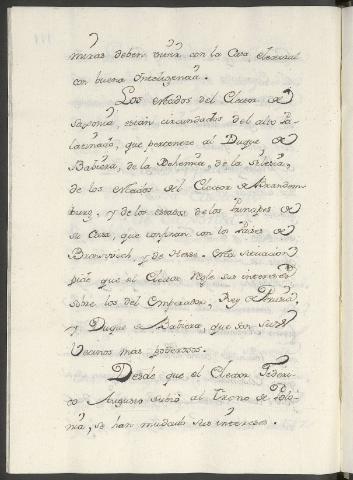 miras deben vivir con la Casa electoral
con buena Inteligencia.
Los estados del Elector de
Saxonia, están circundados del alto Pa-
latinado, que pertenece al Duque de
Babiera, de la Bohemia, de la Silesia,
de los estados del Elector de Brandem-
burg, y de los estados de los Principes de
su Casa, que confinan con los Paises de
Brunswich, y de Hesse. Esta situacion
pide que el Elector regle sus intereses
sobre los del Emperador, Rey de Prusia,
y Duque de Babiera que son sus
Vecinos mas poderosos.
Desde que el Elector Federi-
co Augusto subió al Trono de Polo-
nia, se han mudado sus intereses.